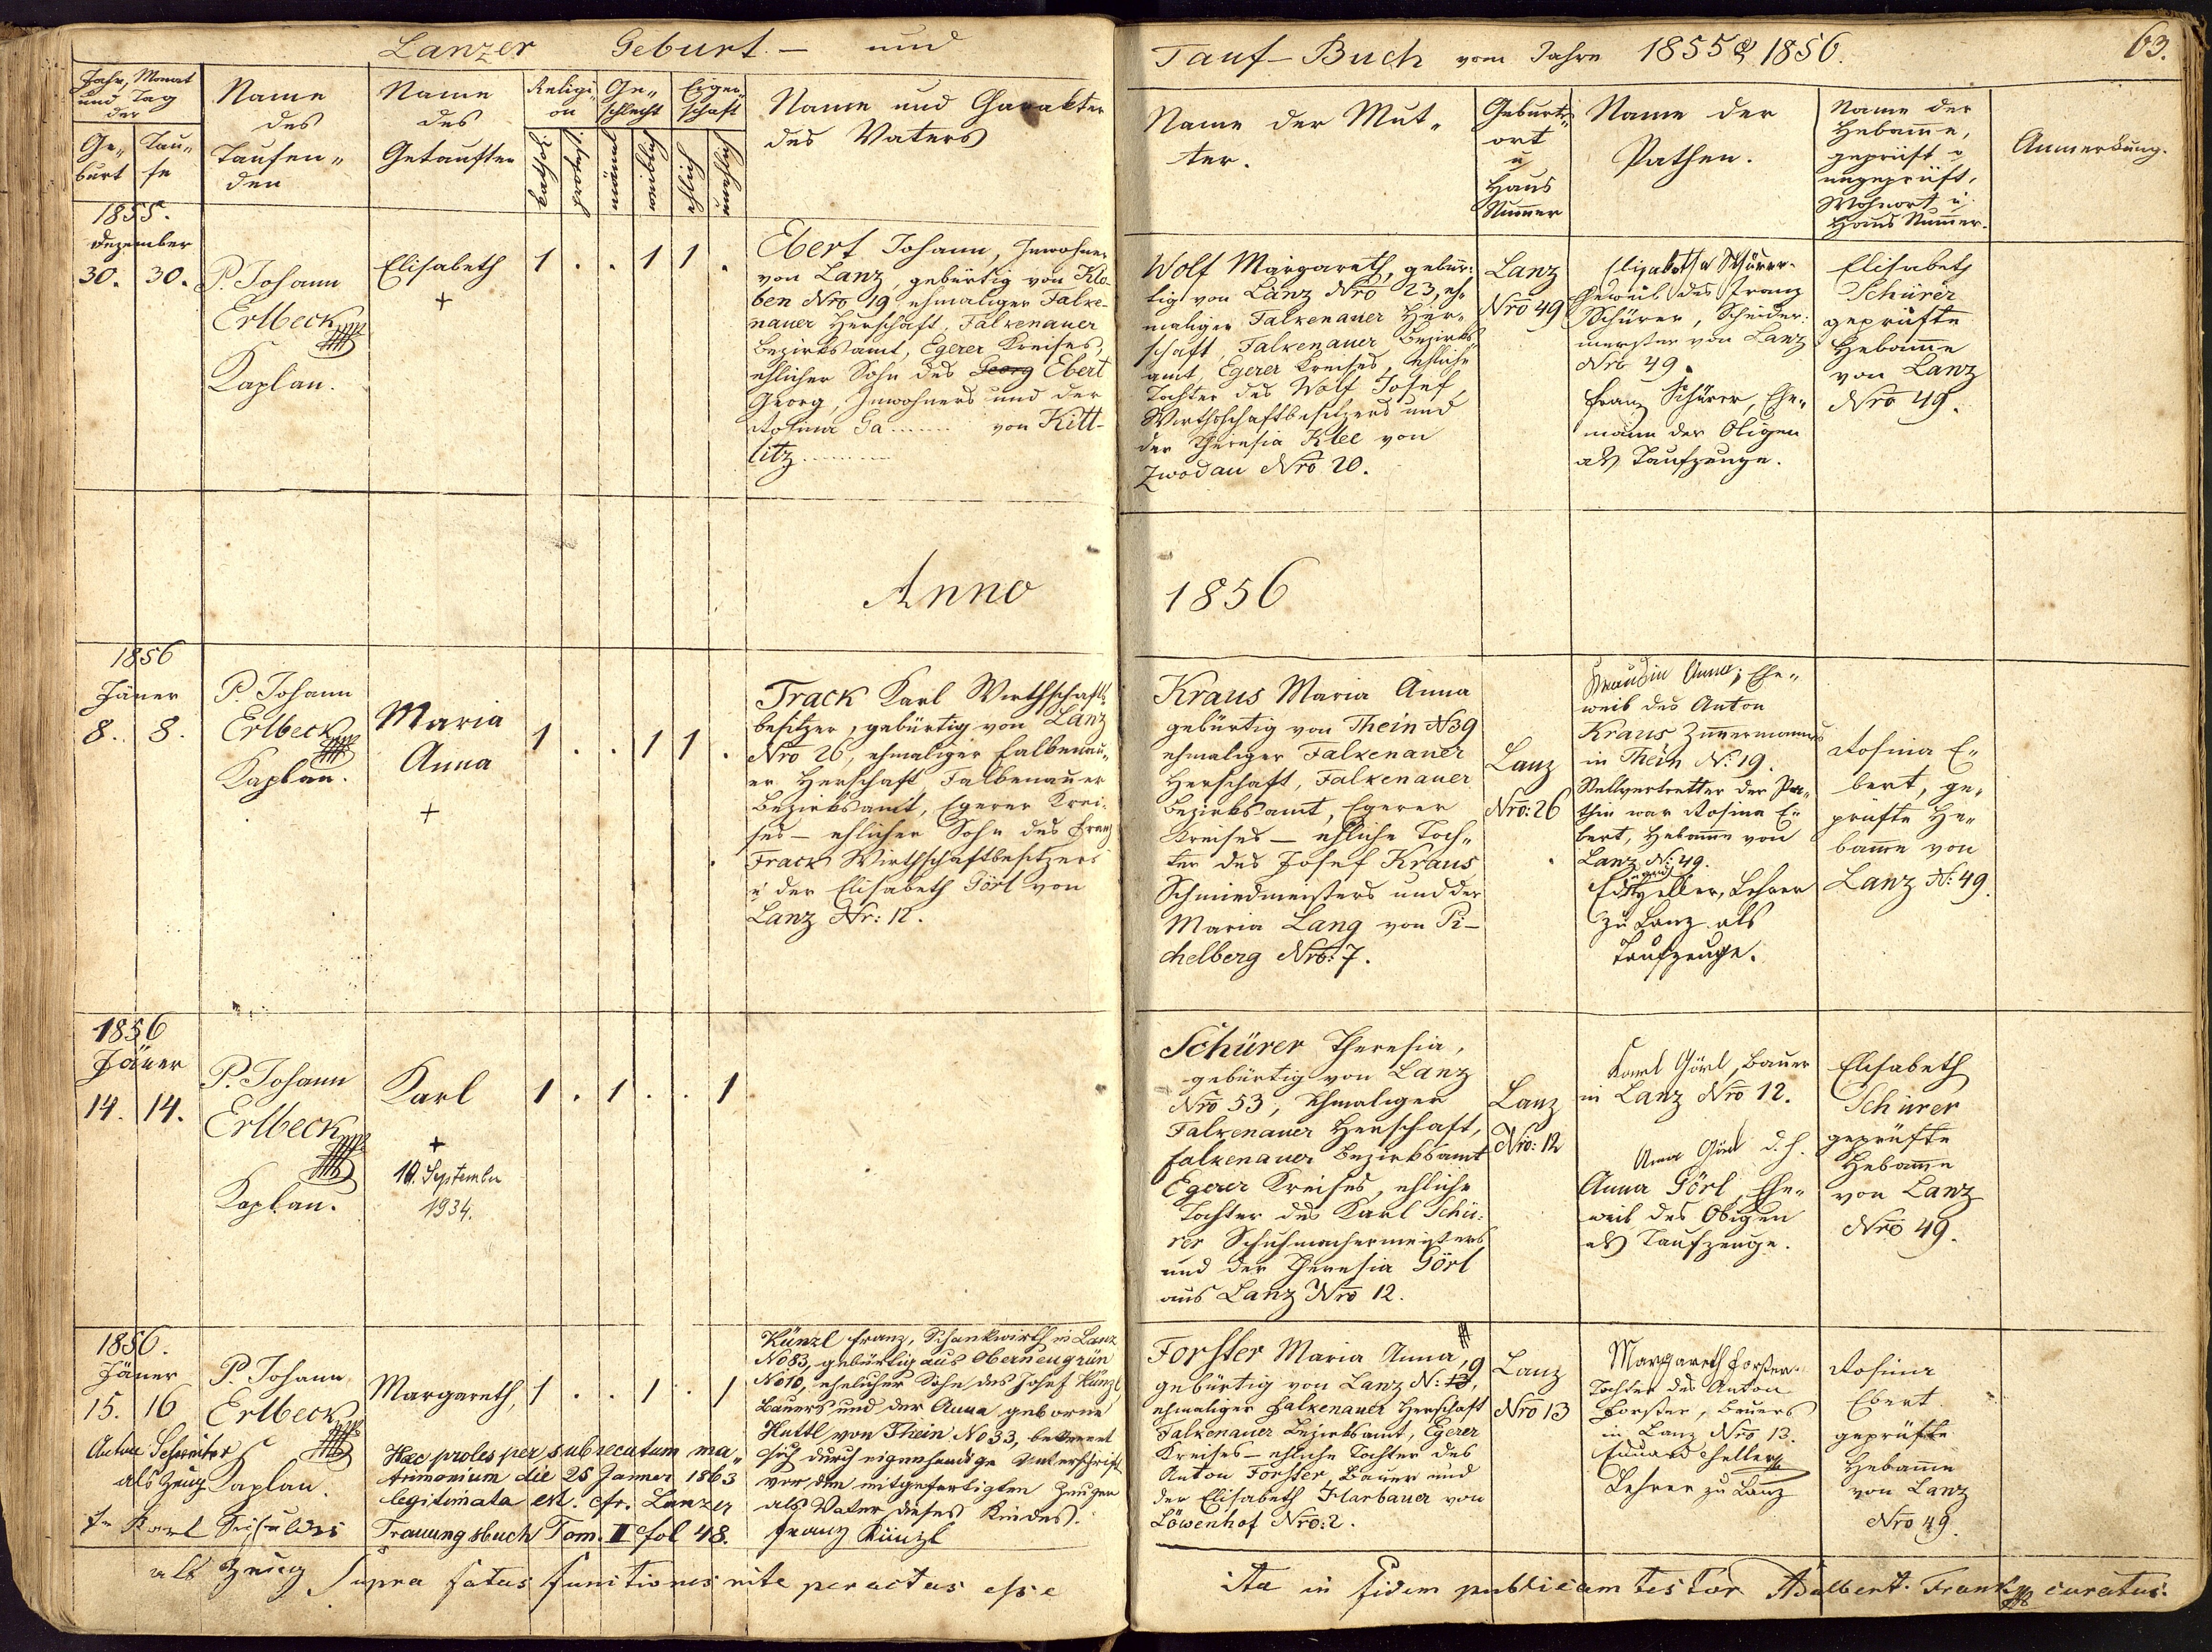 Lanzer Geburt – und
Tauf-Buch vom Jahre 1855 & 1856.
63.
Jahr, Monat
und Tag
der
Ge-
burt
Tau-
fe
Name
des
Taufen-
den
Name
des
Getauften
Religi-
on
kathol.
protest.
Ge-
schlecht
männl.
weiblich
Eigen-
schaft
ehlich
unehlich
Name und Charakter
des Vaters
Name der Mut-
ter.
Geburts-
ort
u
Haus
Nummer
Name der
Pathen.
Name der
Hebamme,
geprüft o
ungeprüft,
Wohnort u
Haus Nummer.
Anmerkung.
1855.
Dezember
30. 30.
P. Johann
Erlbeck
Kaplan.
Elisabeth
+
1 . . 1 1 .
Ebert Johann, Inwohner
von Lanz, gebürtig von Klo-
ben Nro 19 ehmaliger Falke-
nauer Herschaft, Falkenauer
Bezirksamt, Egerer Kreises,
ehlicher Sohn des Georg Ebert
Georg, Inwohners und der
Rosina Ga...... von Kitt-
litz..........
Wolf Margareth, gebür-
tig von Lanz Nro 23, eh-
maliger Falkenauer Her-
schaft, Falkenauer Bezirks-
amt, Egerer Kreises, ehliche
Tochter des Wolf Josef,
Wirthschaftbesitzers und
der Theresia Klee von
Zwodau Nro 20.
Lanz
Nro 49
Elisabetha Schürer
Eheweib des Franz
Schürer, Schneider-
meister von Lanz
Nro 49.
Franz Schürer, Ehe-
mann der Obigen
als Taufzeuge.
Elisabeth
Schürer
geprüfte
Hebamme
von Lanz
Nro 49.
Anno 1856
1856
Jäner
8. 8.
P. Johann
Erlbeck
Kaplan.
Maria
Anna
+
1 . . 1 1 .
Track Karl Wirthschafts-
besitzer, gebürtig von Lanz
Nro 26, ehmaliger Falkenau-
er Herschaft, Falkenauer
Bezirksamt, Egerer Krei-
ses – ehlicher Sohn des Franz
Track Wirthschaftbesitzers
u der Elisabeth Görl von
Lanz Nr: 12.
Kraus Maria Anna
gebürtig von Thein N39
ehmaliger Falkenauer
Herschaft, Falkenauer
Bezirksamt, Egerer
Kreises – ehliche Toch-
ter des Josef Kraus
Schmiedmeisters und der
Maria Lang von Pi-
chelberg Nro: 7.
Lanz
Nro: 26
Anna, Ehe-
weib des Anton
Kraus Zimmermanns
in Thein N: 19.
Stellvertretter der Pa-
thin war Rosina E-
bert, Hebamme von
Lanz N: 49.
Zeller, Lehrer
zu Lanz als
Taufzeuge.
Rosina E-
bert, ge-
prüfte He-
bamme von
Lanz N: 49.
1856
Jäner
14. 14.
P. Johann
Erlbeck
Kaplan.
Karl
+
10. September
1934.
1 . 1 . . 1
Schürer Theresia,
gebürtig von Lanz
Nro 53, ehmaliger
Falkenauer Herschaft,
Falkenauer Bezirksamt
Egerer Kreises, ehliche
Tochter des Karl Schü-
rer Schuhmachermeisters
und der Theresia Görl
aus Lanz Nro 12.
Lanz
Nro: 12
Karl Görl, Bauer
in Lanz Nro 12.
Anna Görl d. h.
Anna Görl, Ehe-
weib des Obigen
als Taufzeuge.
Elisabeth
Schürer
geprüfte
Hebamme
von Lanz
Nro 49.
1856.
Jäner
15. 16
P. Johann
Erlbeck
Kaplan.
Anton
als Zeug
Karl
als Zeug
Margareth,
1 . . 1 . 1
Haec proles per subsecutum ma-
trimonium die 25 Janner 1863
legitimata est. cfr. Lanzer
Trauungsbuch Tom. II fol 48.
Künzl Franz, Schankwirth in Lanz
No 83, gebürtig aus Oberneugrün
No 10, ehelicher Sohn des Josef Künzl
Bauers und der Anna geborne
Huttl von Thein No 33, bekennt
sich durch eigenhändige Unterschrift
vor den mitgefertigten Zeugen
als Vater dieses Kindes.
Franz Künzl
Forster Maria Anna,
gebürtig von Lanz N: 13, 9
ehmaliger Falkenauer Herschaft
Falkenauer Bezirksamt, Egerer
Kreises – ehliche Tochter des
Anton Forster, Bauer und
der Elisabeth Harbauer von
Löwenhof Nro: 2.
Lanz
Nro 13
Margareth Forster
Tochter des Anton
Forster, Bauers
in Lanz Nro 13.
Eduard Zeller
Lehrer zu Lanz
Rosina
Ebert
geprüfte
Hebamme
von Lanz
Nro 49.
Supra fatas functiones rite peractas esse ita in fidem publicam testor Adalbert Frank curatus.